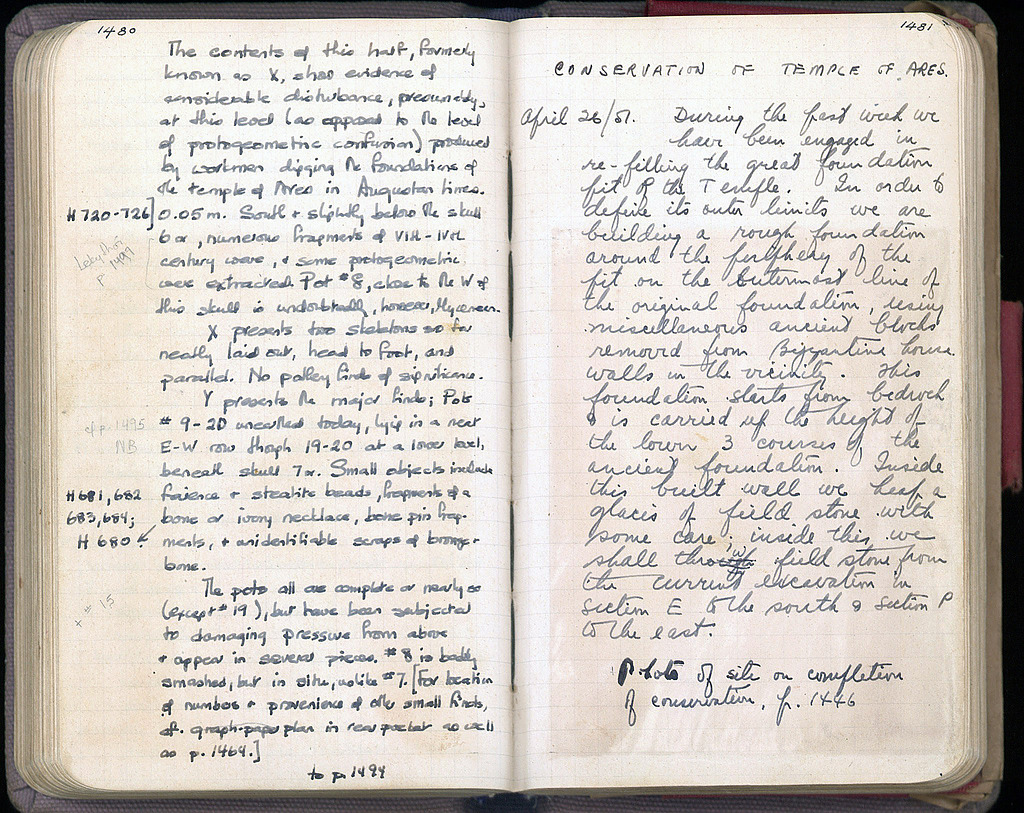 1480
The contents of this half, formerly
known as X, show evidence of
considerable disturbance, presumably,
at this level (as opposed to the level
of protogeometric confusion) produced
by workmen digging the foundations of
the temple of Ares in Augustan times.
H 720-726] 0.05 m. South + slightly below the skull
6α, numerous fragments of VIII-IVth
century ware, + some protogeometric
were extracted. Pot #8, close to the W of
this skull is undoubtedly, however, Mycenean.
Lekythoi
p 1499
X presents two skeletons so far
neatly laid out, head to foot, and
parallel. No pottery finds of significance.
Y presents the major finds; Pots
cf p. 1495
NB
# 9-20 unearthed today, lying in a neat
E-W row though 19-20 at a lower level,
beneath skull 7α. Small objects include
H 681, 682
683, 684;
H 680
faience + steatite beads, fragments of a
bone or ivory necklace, bone pin frag-
ments, + unidentifiable scraps of bronze +
bone.
The pots all are complete or nearly so
x # 15
(except #19), but have been subjected
to damaging pressure from above
+ appear in several pieces. #8 is badly
smashed, but in situ, unlike #7. [For location
of numbers + provenience of the small finds,
cf. graph-paper plan in rear pocket as well
as p. 1464.]
to p. 1494
1481
CONSERVATION OF TEMPLE OF ARES.
April 26/51. During the past week we
have been engaged in
re-filling the great foundation
pit of the Temple. In order to
define its outer limits we are
building a rough foundation
around the periphery of the
pit on the outermost line of
the original foundation, using
miscellaneous ancient blocks
removed from Byzantine house
walls in the vicinity. This
foundation starts from bedrock
& is carried up the height of
the lower 3 courses of the
ancient foundation. Inside
this built wall we heap a
glacis of field stone with
some care; inside this we
shall throw field stone from
the current excavation in
section E to the south & section P
to the east.
Photo of site on completion
of conservation, p. 1446